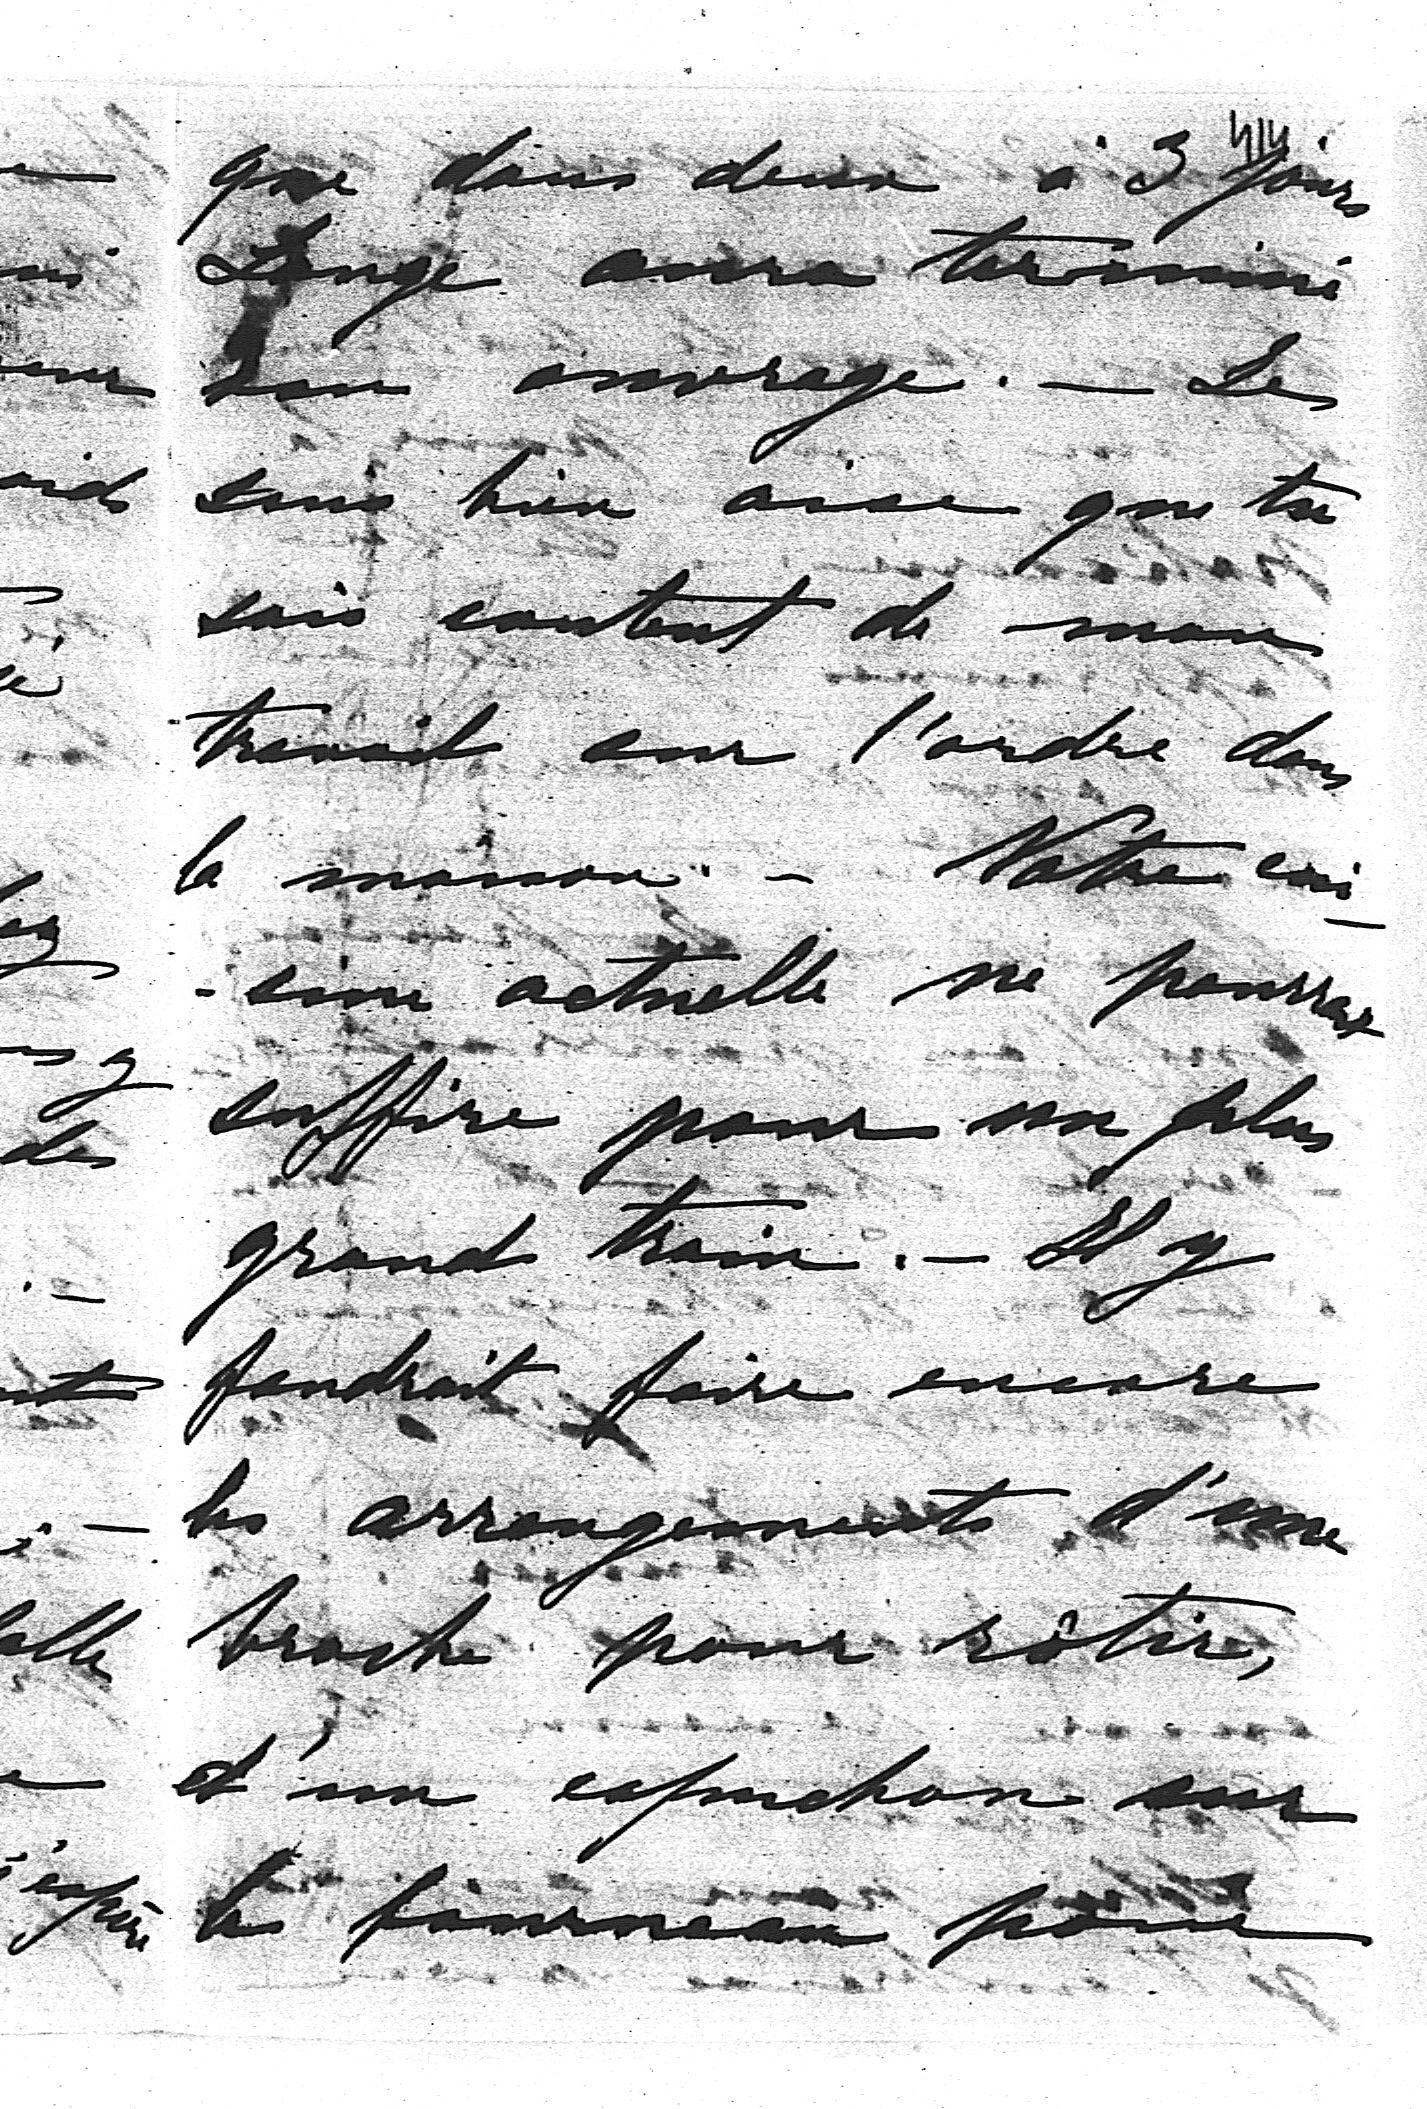 que dans deux à 3 jours
Lange aura terminé
son ouvrage. — Je
suis bien aise que tu
sois content de mon
travail sur l'ordre dans
la maison. — Notre cui-
-sine actuelle ne pourrait
suffire pour un plus
grand train. — Il y
faudrait faire encore
les arrangements d'une
broche pour rôtir,
d'un capuchon sur
le fourneau pour